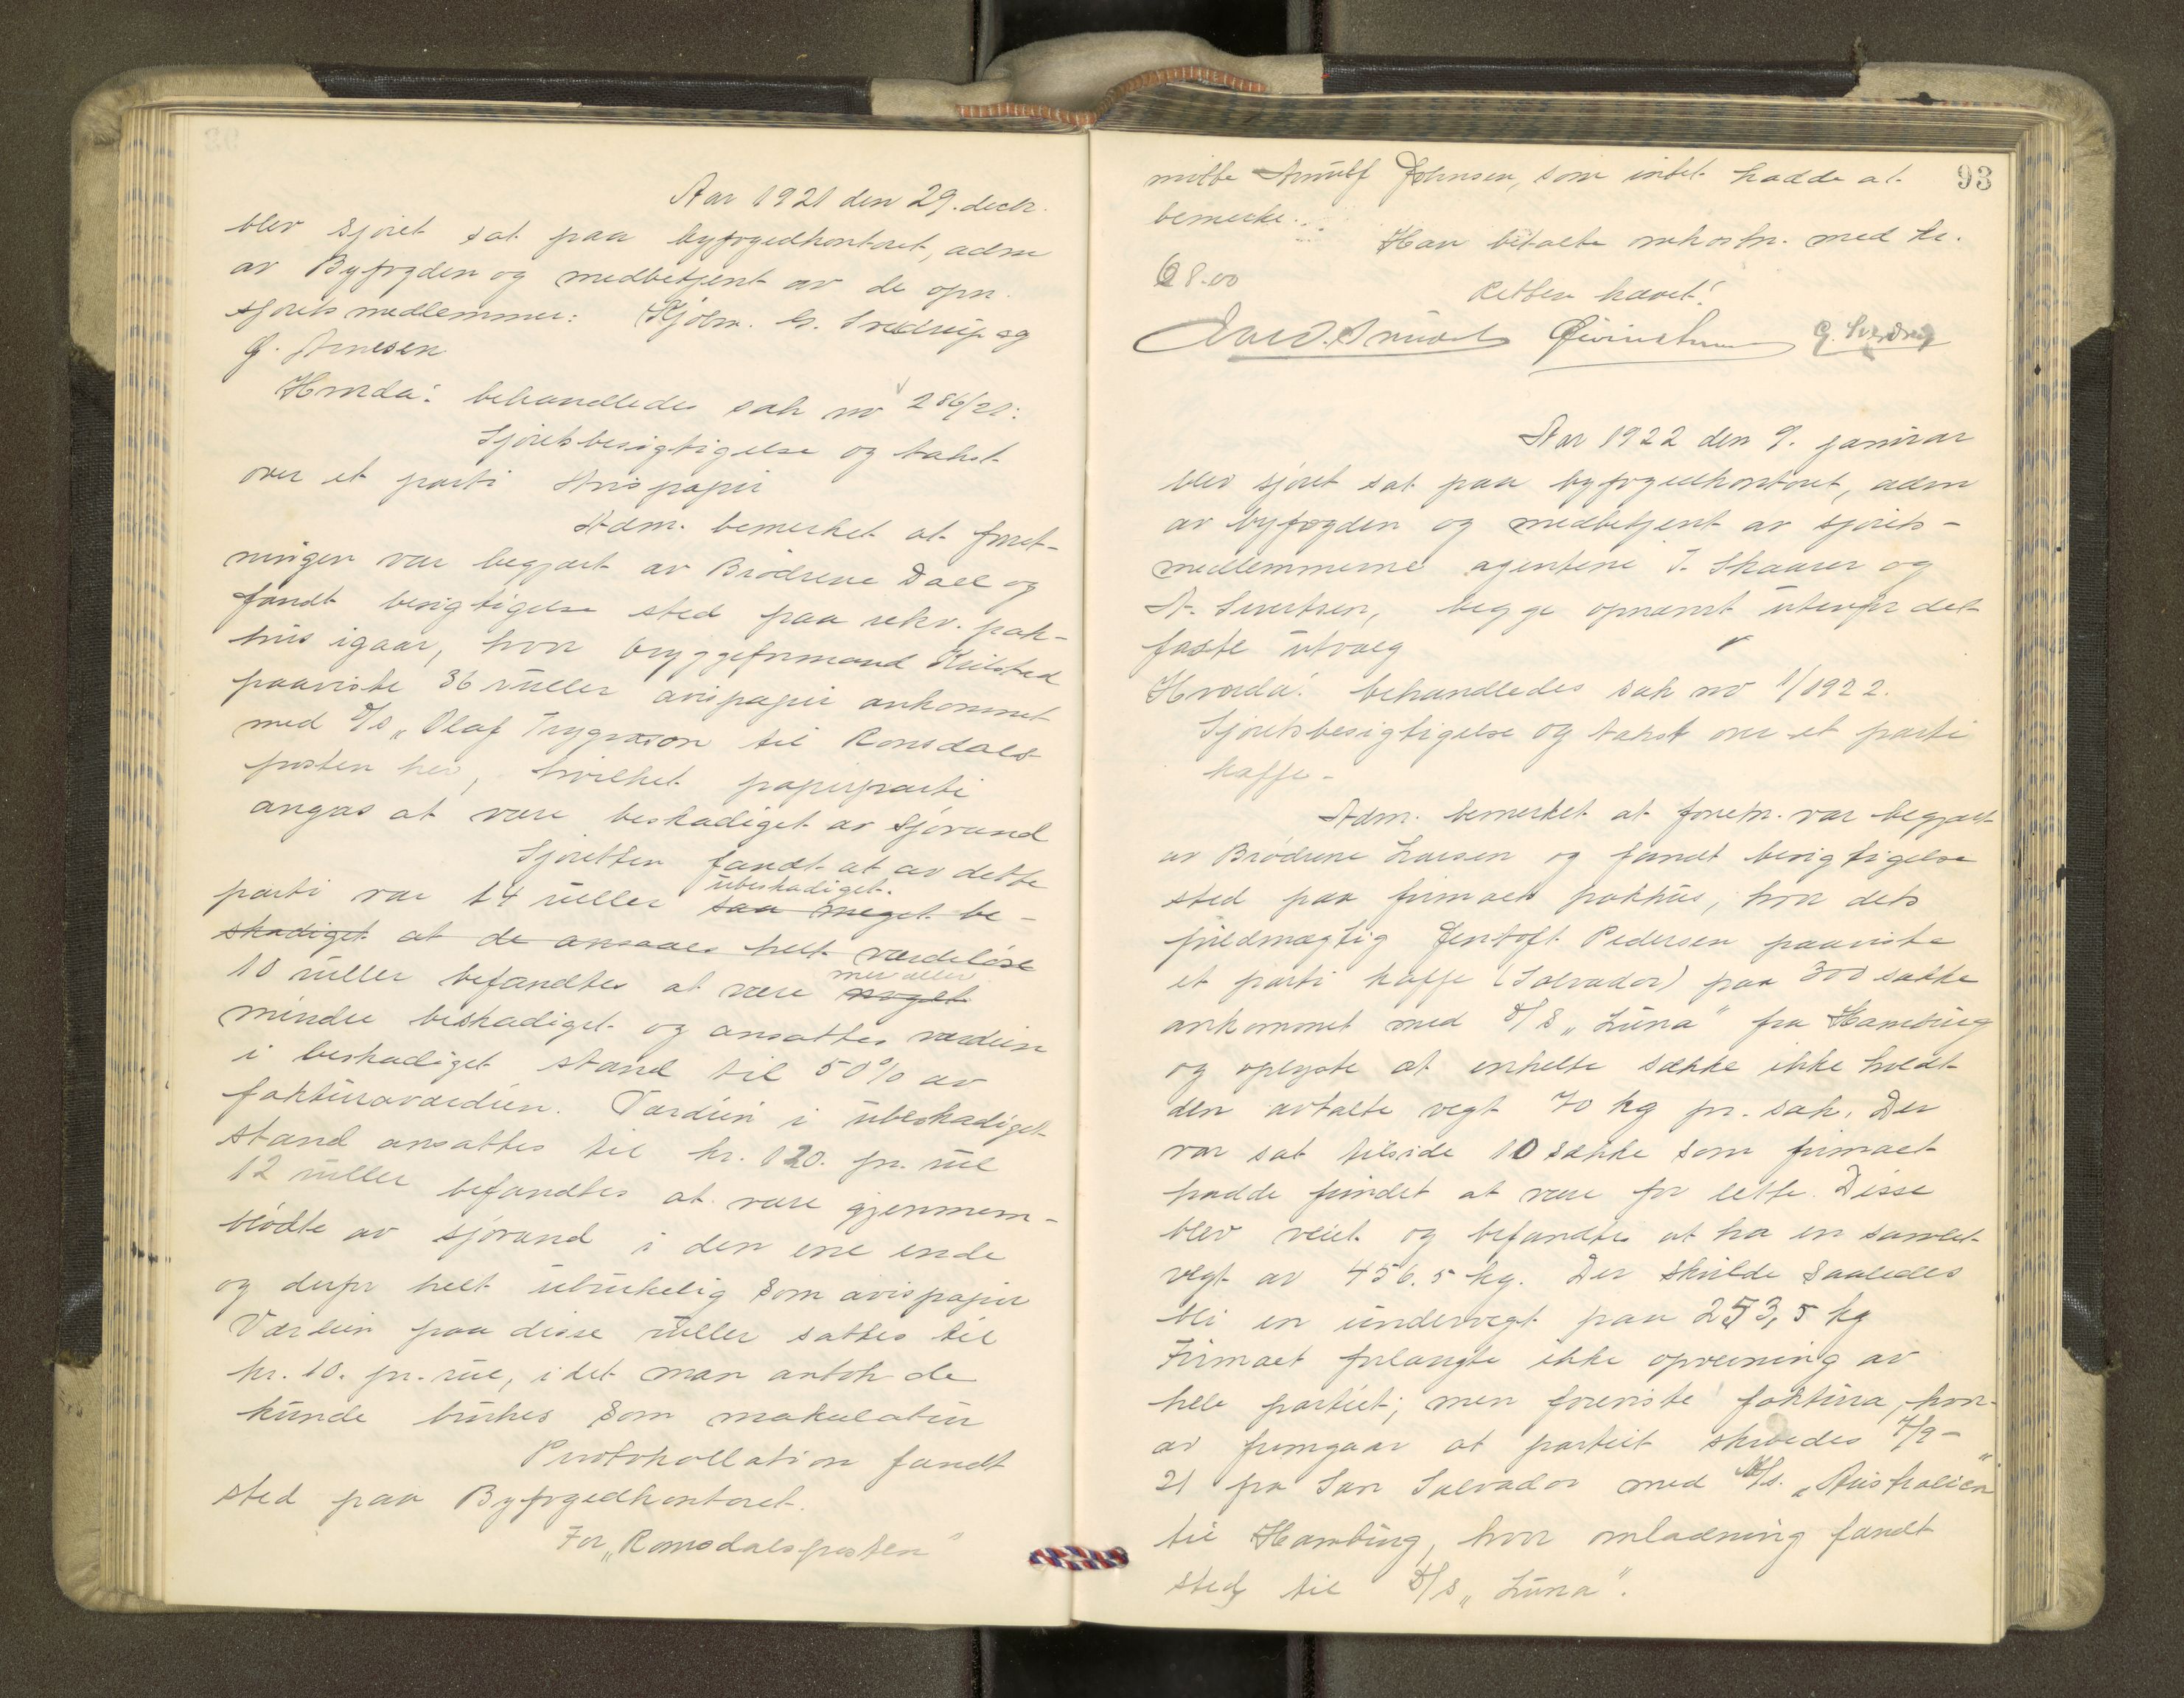 Aar 1921 den 29. decbr.
blev sjøret sat paa byfogedkontoret, adm
av Byfogden og medbetjent av de opn.
sjøretsmedlemmer: Kjøbm. G. Sverdrup og
Ø. Arnesen
Hvorda: behandledes sak no 286/21:
Sjøretsbesigtigelse og takst
over et parti Avispapir
Adm. bemerket at forret-
ningen var begjært av Brödrene Dall og
fandt besigtigelse sted paa rekv. pak-
hus igaar, hvor bryggeformand Kulsted
paaviste 36 ruller avispapir ankommet
med D/S „Olaf Trygvason til Romsdals-
posten her, hvilket papirparti
angas at være beskadiget av sjøvand
Sjøretten fandt at av dette
parti var 14 ruller saa meget be- ubeskadiget.
skadiget at de ansaaes helt værdeløse
10 ruller befandtes at være noget mer eller
mindre beskadiget og ansattes værdien
i beskadiget stand til 50% av
fakturaværdien. Værdien i ubeskadiget
stand ansattes til kr. 120. pr. rul
12 ruller befandtes at være gjennem-
blødte av sjøvand i den ene ende
og derfor helt ubrukelig som avispapir
Værdien paa disse ruller sattes til
kr. 10. pr. rul, idet man antok de
kunde brukes som makulatur
Protokollation fandt
sted paa Byfogedkontoret.
For „Romsdalsposten"
93
møtte Arnulf Johnsen, som intet hadde at
bemerke.
Han betalte omkostn. med kr.
68.00
Retten hævet!
G. Sverdrup
Aar 1922 den 9. januar
blev sjøret sat paa byfogedkontoret, adm
av byfogden og medbetjent av sjørets-
medlemmerne agentene J. Skaarer og
A. Sivertsen, begge opnævnt utenfor det
faste utvalg
Hvorda: behandledes sak no 1/1922.
Sjøretsbesigtigelse og takst over et parti
kaffe -
Adm. bemerket at forretn. var begjært
av Brødrene Larsen og fandt besigtigelse
sted paa firmaets pakhus, hvor dets
fuldmægtig Jentoft Pedersen paaviste
et parti kaffe (Salvador) paa 300 sække
ankommet med D/S „Luna" fra Hamburg
og oplyste at enkelte sække ikke holdt
den avtalte vegt 70 kg pr. sæk. Der
var sat tilside 10 sække som firmaet
hadde fundet at være for lette. Disse
blev veiet og befandtes at ha en samlet
vegt av 456.5 kg. Der skulde saaledes
bli en undervegt paa 253,5 kg
Firmaet forlangte ikke opveining av
hele partiet; men foreviste faktura, hvor-
av fremgaar at partiet skibedes 7/9-
21 fra San Salvador med M/S. „Australien"
til Hamburg, hvor omladning fandt
sted til D/S „Luna".